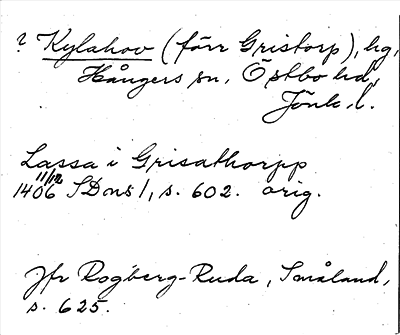 ? Kylahov (förr Gristorp), hg,
Hångers sn, Östbo hd,
Jönk. l.
Lassa i Grisathorpp
1406 11/12 SDns 1, s. 602. orig.
Jfr Rogberg-Ruda, Småland,
s. 625.